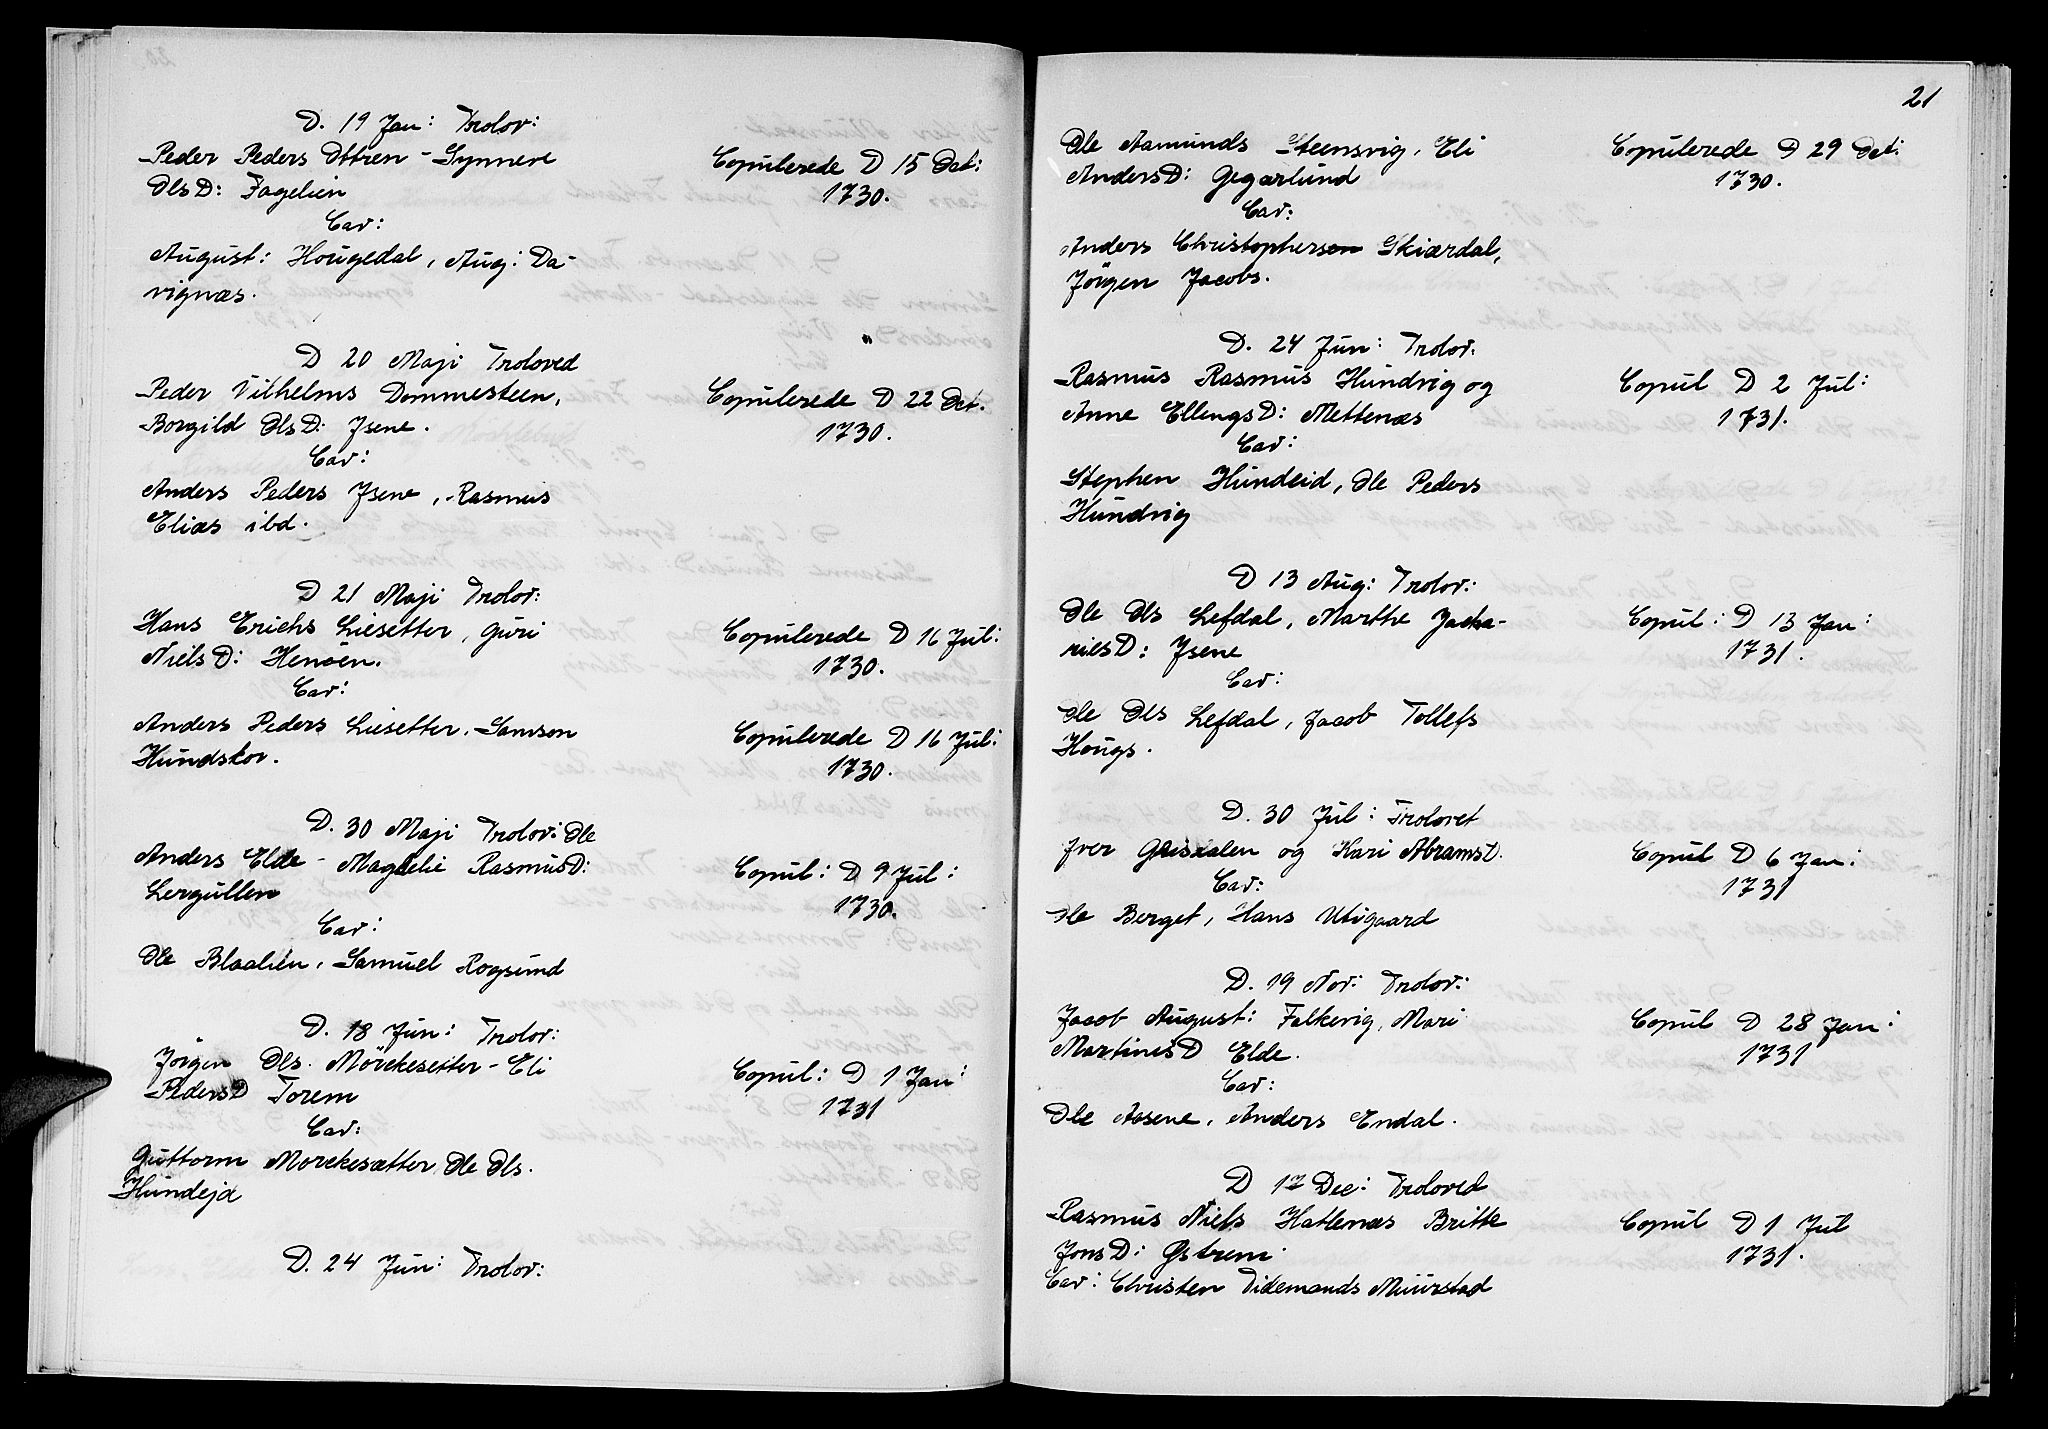 D. 19 Jan: Trolov:
Peder Peders Ottren - Synnere
Ols D: Fagelien
Copulerede D 15 Oct:
1730.
Cav:
August: Hougedal, Aug: Da-
vignæs.
D 20 Maji Troloved
Peder Vilhelms Dommesteen,
Borgild Ols D: Isene.
Copulerede D 22 Oct.
1730.
Cav:
Anders Peders Isene, Rasmus
Elias ibd.
D 21 Maji Trolov:
Hans Erichs Liesetter, Guri
Niels D: Henøen.
Copulerede D 16 Jul:
1730.
Cav:
Anders Peders Liesetter. Samson
Hundskor.
Copulerede D 16 Jul:
1730.
D. 30 Maji Trolov: Ole
Anders Elde - Magdelie Rasmus D:
Lergullen
Copul: D 9 Jul:
1730.
Cav:
Ole Blaalien, Samuel Rogsund
D. 18 Jun: Trolov:
Jörgen Ols. Mörckesetter - Eli
Peders D Torem
Copul: D 1 Jan:
1731
Cav:
Guttorm Morckesætter Ole Ols.
Hundeja
D. 24 Jun: Trolov:
21
Ole Aamunds Steensvig, Eli
Anders D: Gegarlund
Copulerede D 29 Oct:
1730.
Cav:
Anders Christophersen Skiærdal,
Jörgen Jacobs.
D. 24 Jun: Trolov.
Rasmus Rasmus Hundvig og
Anne Ellengs D: Mettenæs
Copul D 2 Jul:
1731.
Cav:
Stephen Hundeid, Ole Peders
Hundvig
D 13 Aug: Trolov:
Ole Ols Lefdal, Marthe Jacha-
ries D: Isene
Copul: D 13 Jan:
1731.
Cav:
Ole Ols Lefdal, Jacob Tollefs
Hougs.
D. 30 Jul: Trolovet
Iver og Kari Abrams D.
Copul D 6 Jan:
1731
Cav:
Ole Berget, Hans Utigaard
D. 19 Nov: Trolov:
Jacob August: Falkevig, Mari
Martinus D Elde.
Copul D 28 Jan:
1731
Cav:
Ole Aasene, Anders Endal.
D 17 Dec: Troloved
Rasmus Niels Hatlenæs Britte
Jons D: Østrem
Copul D 1 Jul
1731.
Cav: Christen Didemands Muurstad